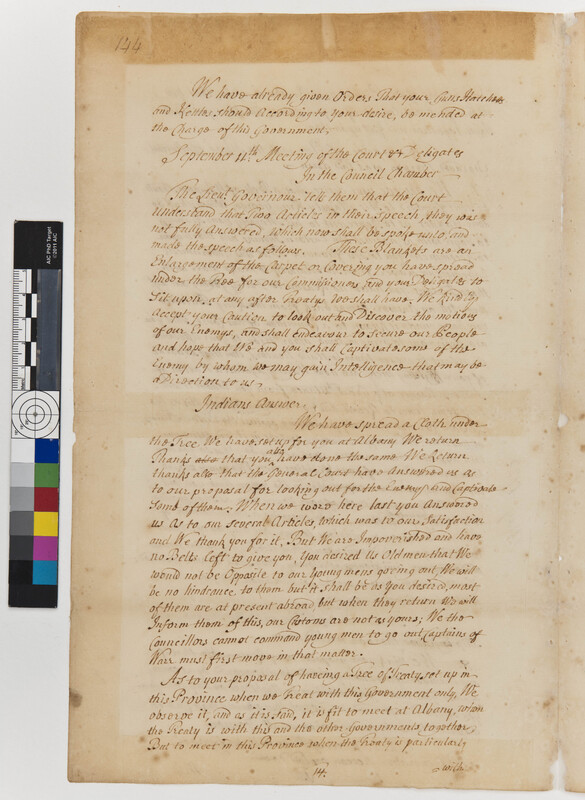 144
We have already given Orders That your Guns Hatchets
and Kettles should According to your desire, be mended at
the Charge of this Government,
September 11th. Meeting of the Court & Deligates
In the Council Chamber
The Lieut. Governour Tell them that the Court
understand that Two Articles in their Speech, they were
not fully Answered, which now shall be spoke unto, and
made the speech as follows. These Blankets are an
Enlargement of the Carpet or Covering you have spread
under the Tree for our Commissioners, and your Deligates to
Sit upon, at any after Treatys we shall have, We Kindly
Accept your Caution to look out and Discover the motions
of our Enemys, and shall endeavour to secure our People
and hope that We and you shall Captivate some of the
Enemy by whom we may gain Intelligence that may be
a Direction to us,
Indians Answer.
We have spread a Cloth under
the Tree We have set up for you at Albany We return
Thanks also that you also have done the same We Return
thanks also that the General Court have Answered us as
to our proposal for looking out for the Enemy and Captivate
Some of them: When we were here last you Answered
us as to our several Articles, which was to our Satisfaction
and We thank you for it, But We are Impoverished and have
no Belts left to give you, You desired Us Old men that We
would not be Opposite to our Young mens going out, We will
be no hindrance to them but it shall be as You desired, most
of them are at present abroad but when they return We will
Inform them of this, our Customs are not as yours; We the
Councillors cannot command young men to go out, Captains of
Warr must first move in that matter.
As to your proposal of haveing a Tree of Treaty set up in
this Province when we Treat with this Government only, We
observe it, and as it is said, it is fit to meet at Albany, when
the Treaty is with this and the other Governments together,
But to meet in this Province when the Treaty is particularly
14.
with
AIC PhD Target
©2011 AIC